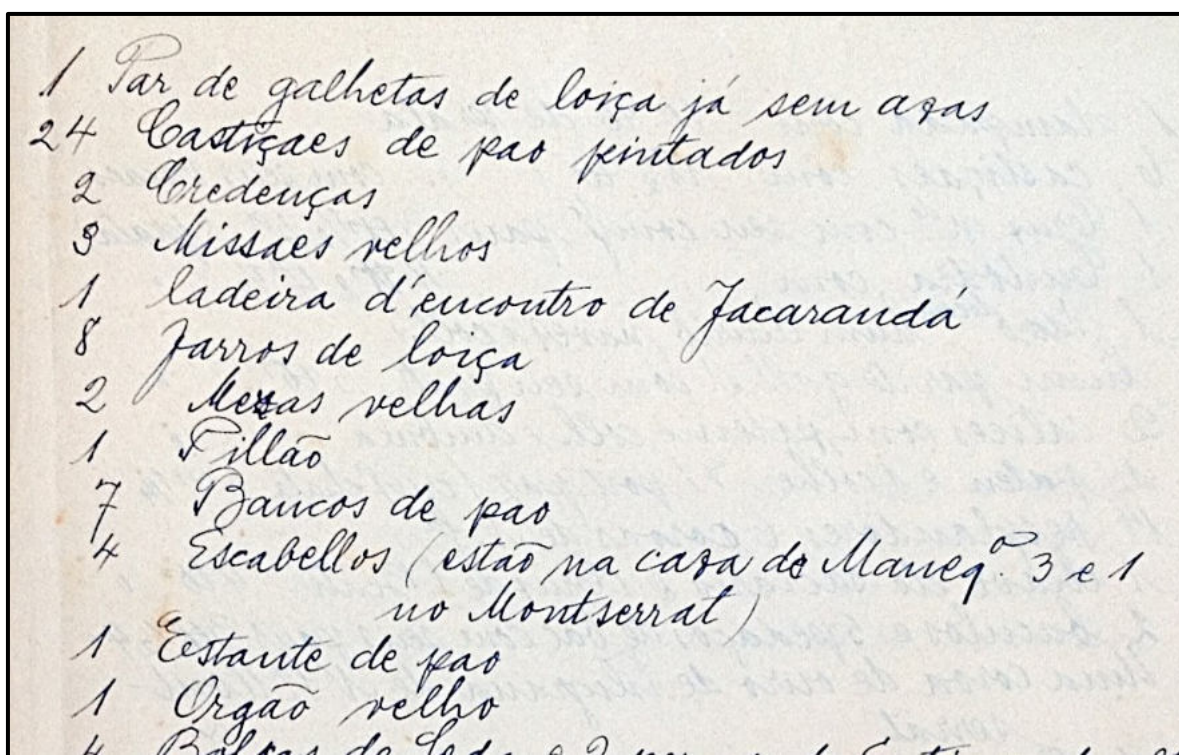 1 Par de galhetas de loiça já sem azas
24 Castiçaes de pao pintados
2 Credenças
3 Missaes velhos
1 Cadeira d'encontro de Jacarandá
8 Jarros de loiça
2 Mezas velhas
1 Sillão
7 Bancos de pao
4 Escabellos (estão na caza de Maneq.º 3 e 1
no Montserrat)
1 Estante de pao
1 Orgão velho
4 Bolsas de Seda